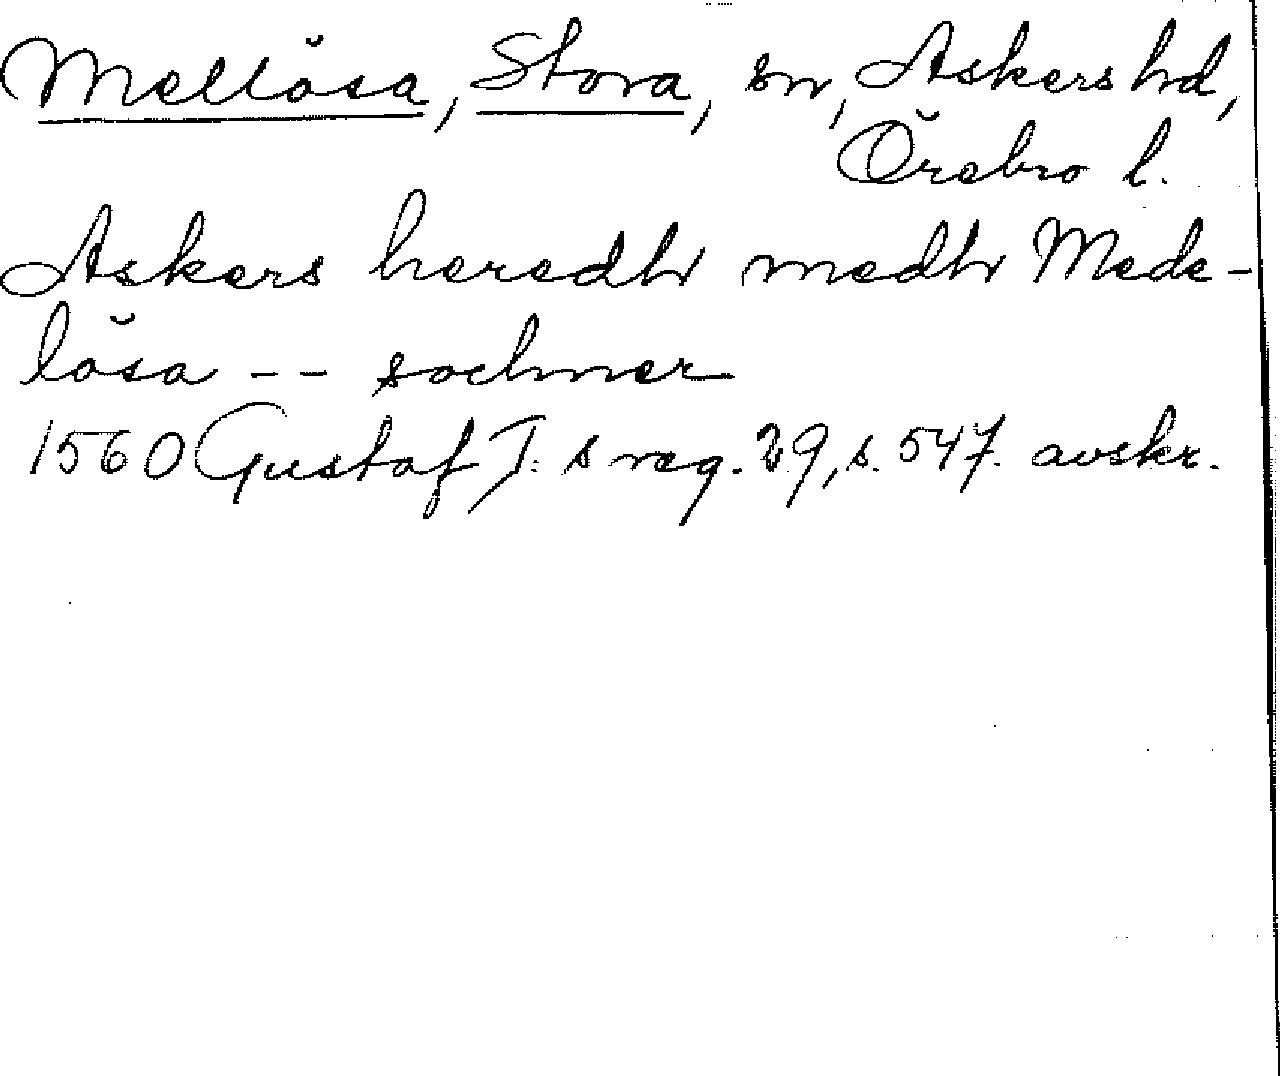 Mellösa, Stora, sn, Askers hd,
Örebro l.
Askers heredh medh Mede-
lösa -- sochner
1560 Gustaf I:s reg. 29, s. 547. avskr.